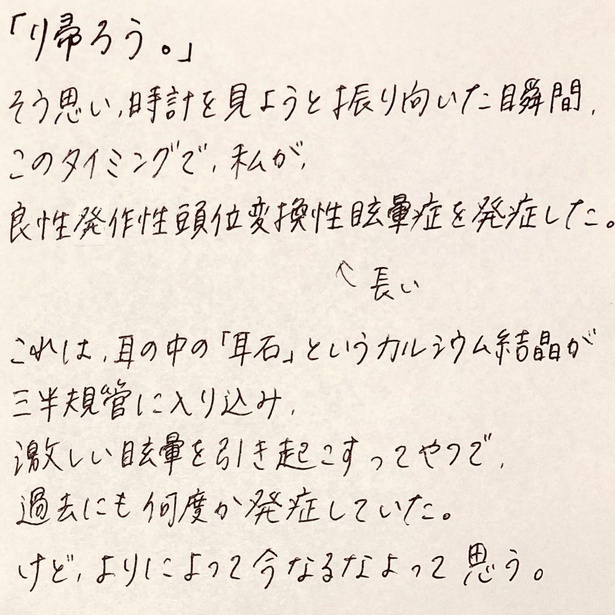 「り帰ろう。」
そう思い、時計を見ようと振り向いた瞬間、
このタイミングで、私が、
良性発作性頭位変換性眩暈症を発症した。
↖長い
これは、耳の中の「耳石」というカルシウム結晶が
三半規管に入り込み、
激しい眩暈を引き起こすってやつで、
過去にも何度か発症していた。
けど、よりによって今なるなよって思う。